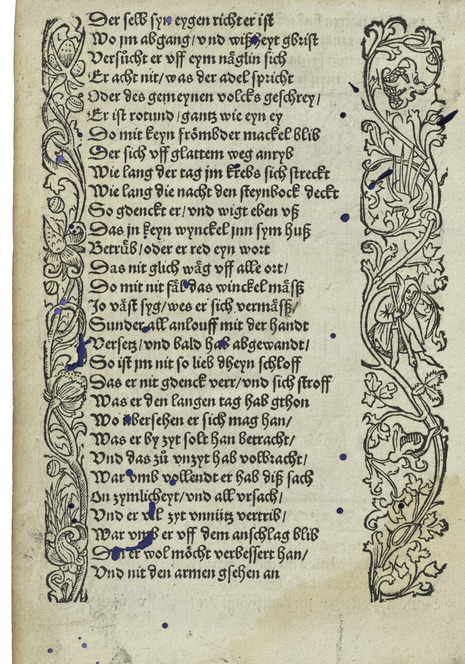 Der selb syn eygen richter ist
Wo jm abgang/vnd wißheyt gbrist
Versůcht er vff eym näglin sich
Er acht nit/was der adel spricht
Oder des gemeynen volcks geschrey/
Er ist rotund/gantz wie eyn ey
Do mit keyn frömbder mackel blib
Der sich vff glattem weg anryb
Wie lang der tag jm krebs sich streckt
Wie lang die nacht den steynbock deckt
So gdenckt er/vnd wigt eben vß
Das jn keyn wynckel jnn sym huß
Betrüb/oder er red eyn wort
Das nit glich wäg vff alle ort/
Do mit nit fäl das winckel mäsß
Jo väst syg/wes er sich vermäsß/
Sunder all anlouff mit der handt
Versetz/vnd bald hab abgewandt/
So ist jm nit so lieb dheyn schloff
Das er nit gdenck verr/vnd sich stroff
Was er den langen tag hab gthon
Wo übersehen er sich mag han/
Was er by zyt solt han betracht/
Vnd das zů vnzyt hab volbracht/
War vmb vollendt er hab diß sach
On zymlicheyt/vnd all vrsach/
Vnd er vil zyt vnnütz vertrib/
War vmb er vff dem anschlag blib
Den er wol möcht verbessert han/
Vnd nit den armen gsehen an